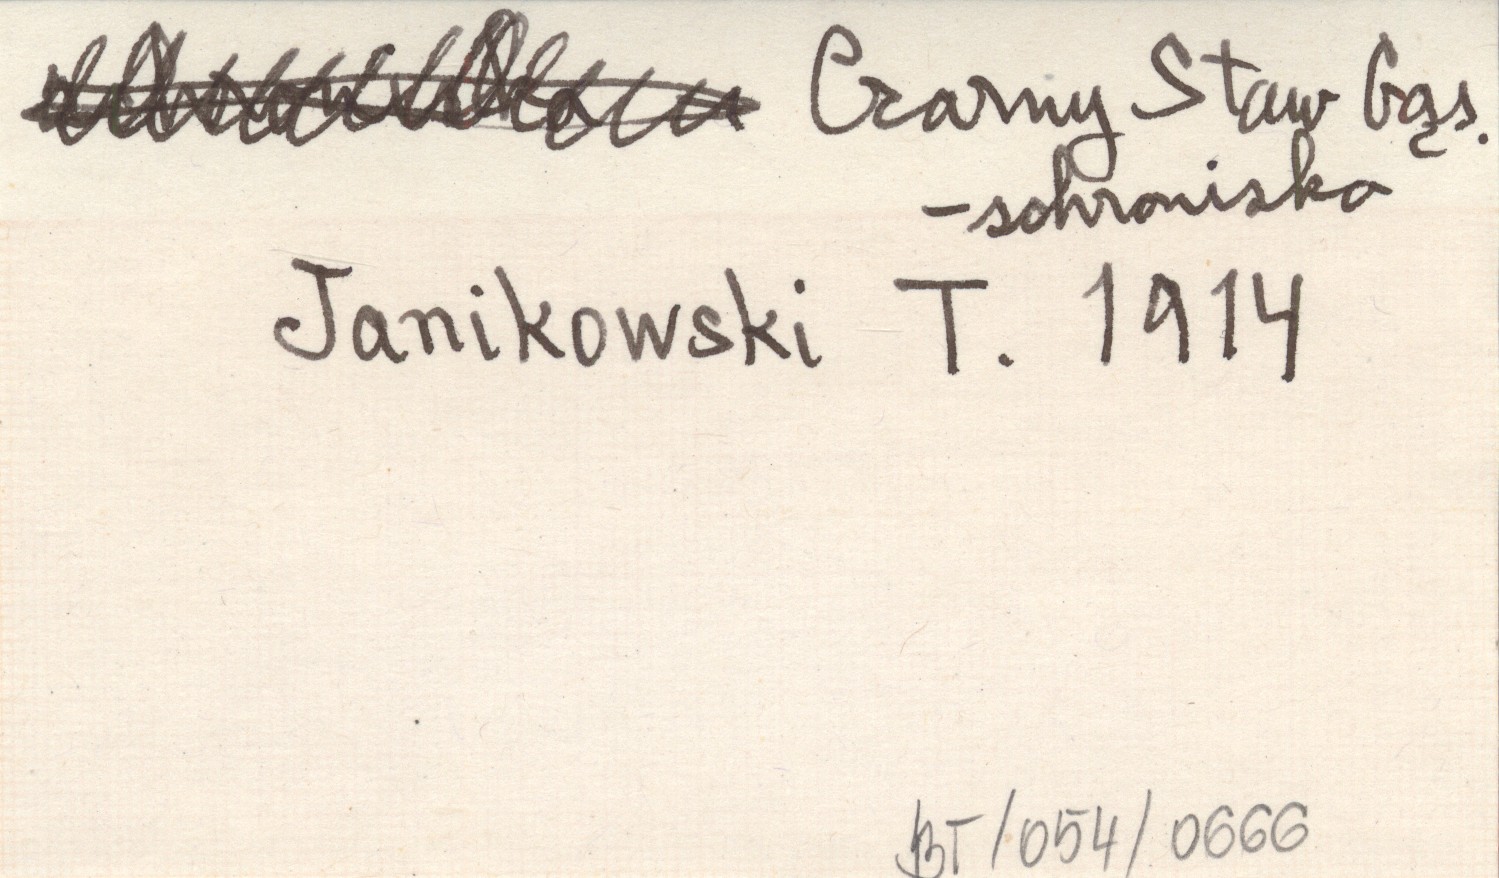 Czarny Staw Gąs.
-schroniska
Janikowski T. 1914
BT/054/0666